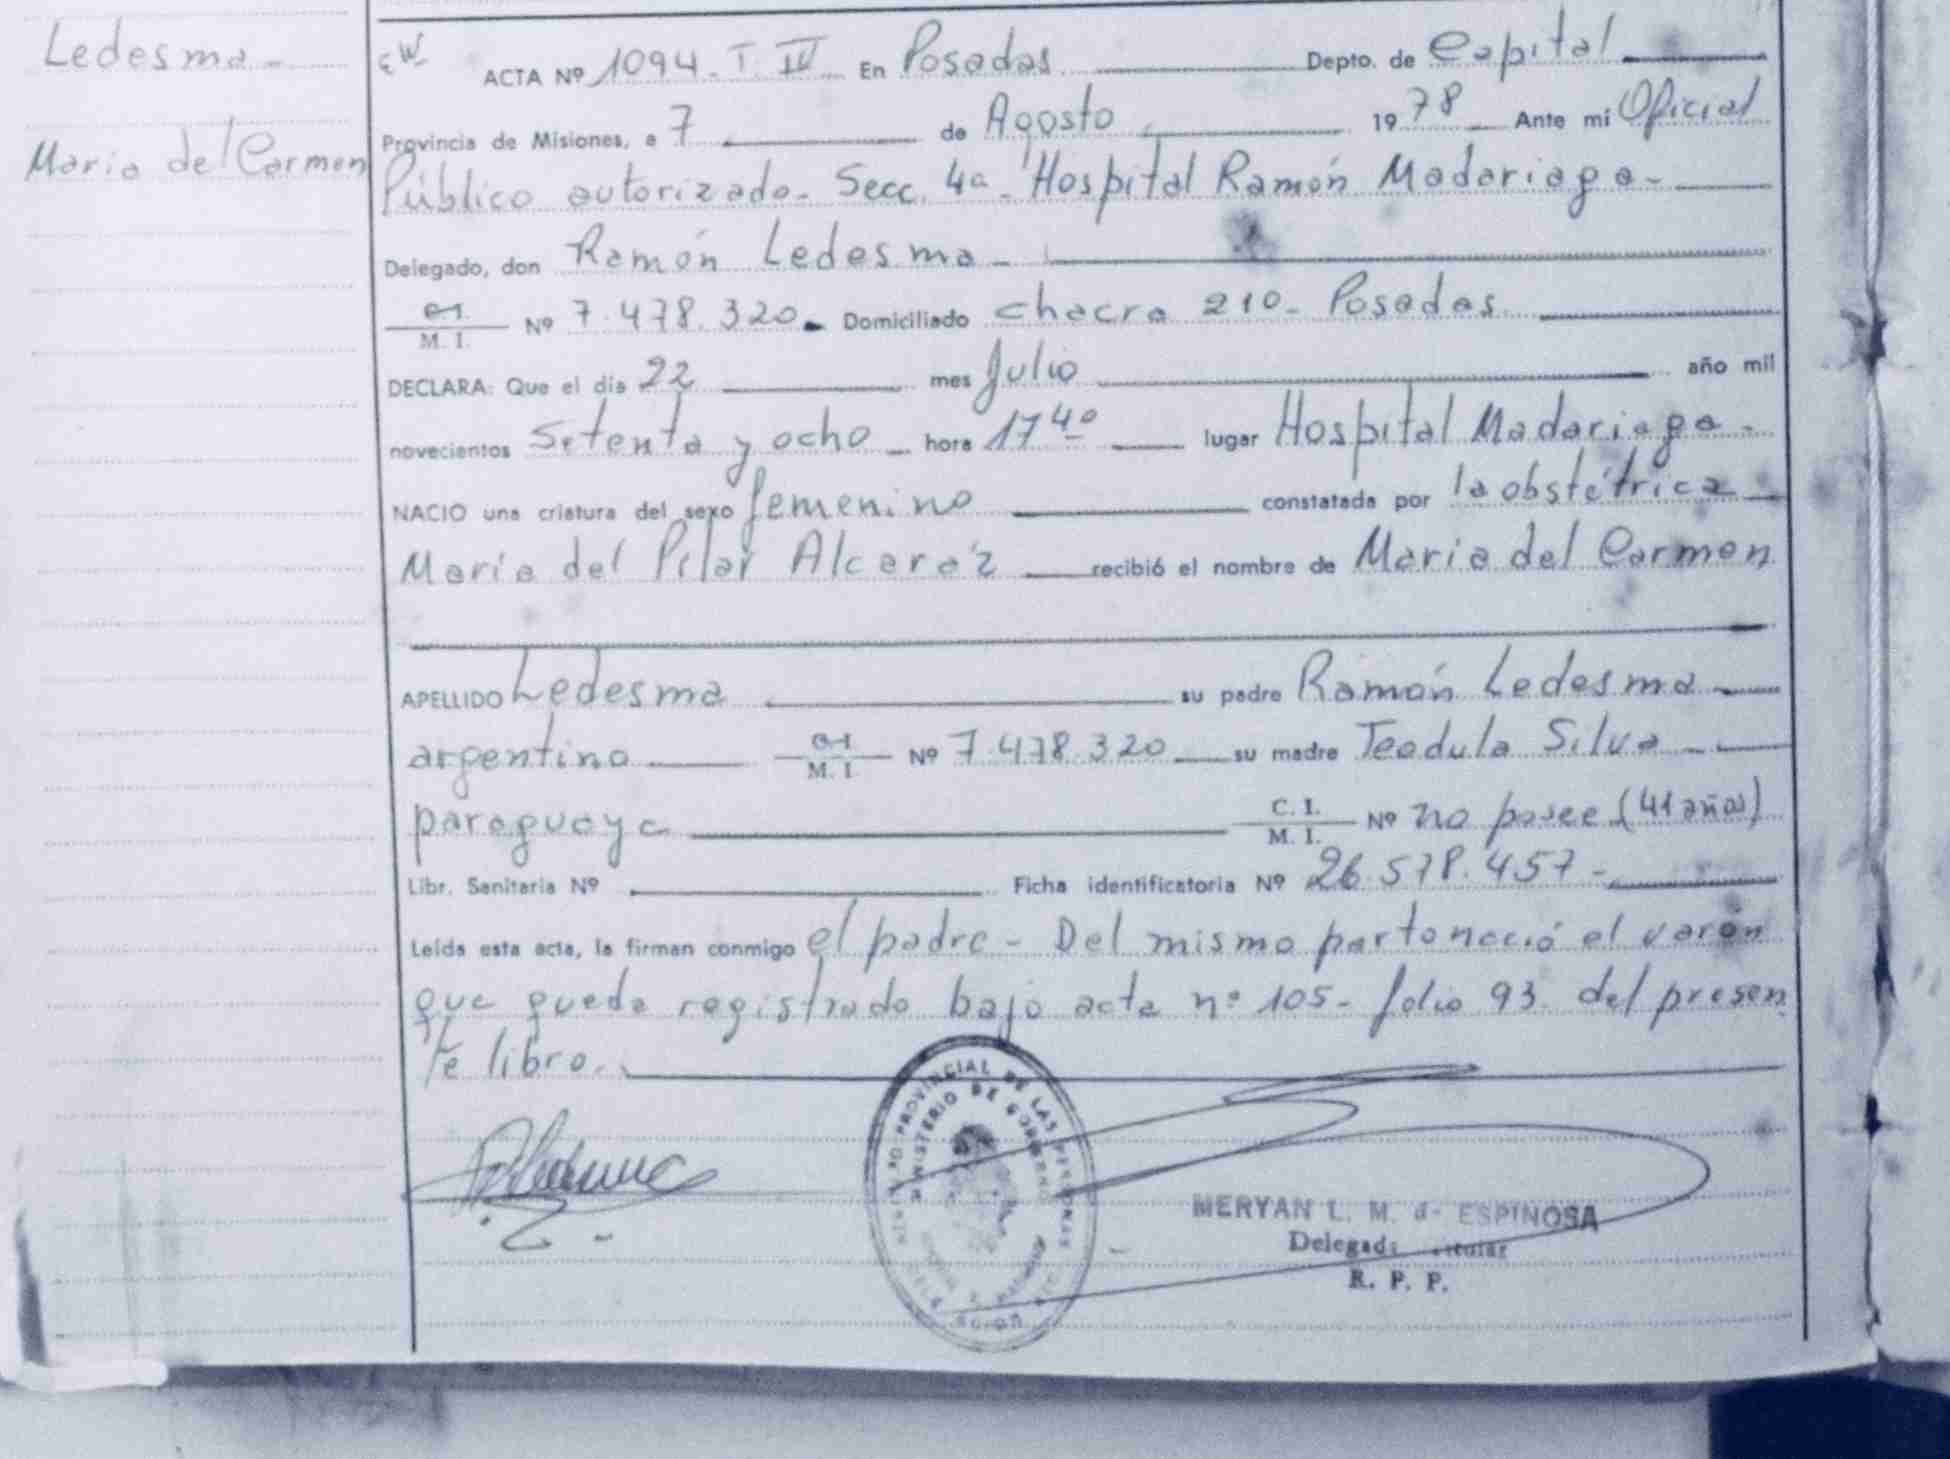 Ledesma -
María del Carmen
ACTA Nº 1094. T IV En Posadas Depto. de Capital
Provincia de Misiones, a 7 de Agosto 1978 Ante mi Oficial
Público autorizado - Secc. 4a - Hospital Ramón Madariaga -
Delegado, don Ramón Ledesma -
M. I. Nº 7.478.320 - Domiciliado chacra 210 - Posadas
DECLARA: Que el día 22 mes Julio año mil
novecientos Setenta y ocho hora 17 40 lugar Hospital Madariaga -
NACIO una criatura del sexo femenino constatada por la obstétrica
María del Pilar Alcaráz recibió el nombre de María del Carmen
APELLIDO Ledesma su padre Ramón Ledesma
argentino M. I. Nº 7.478.320 su madre Teodula Silva -
paraguaya C. I. M. I. Nº no posee (41 años)
Libr. Sanitaria Nº Ficha identificatoria Nº 26.578.457 -
Leída esta acta, la firman conmigo el padre - Del mismo parto nació el varón
que queda registrado bajo acta nº 105 - folio 93 del presen
te libro.
PROVINCIAL DE LAS PERSONAS
MINISTERIO DE GOBIERNO
MERYAN L. M. de ESPINOSA
Delegada Titular
R. P. P.